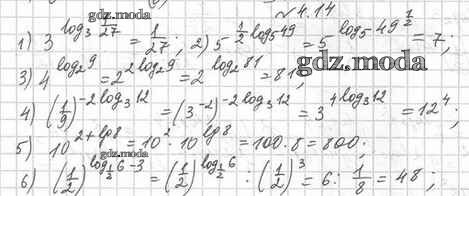 gdz.moda
№4.14
1) 3^{log_3 1/27} = 1/27; 2) 5^{1/2 log_5 49} = 5^{log_5 49^{1/2}} = 7;
3) 4^{log_2 9} = 2^{2 log_2 9} = 2^{log_2 81} = 81; gdz.moda
4) (1/9)^{-2log_3 12} = (3^{-2})^{-2log_3 12} = 3^{4log_3 12} = 12^4;
5) 10^{2+lg8} = 10^2 · 10^{lg8} = 100·8 = 800;
gdz.moda
6) (1/2)^{log_{1/2} 6 - 3} = (1/2)^{log_{1/2} 6} : (1/2)^3 = 6 : 1/8 = 48;